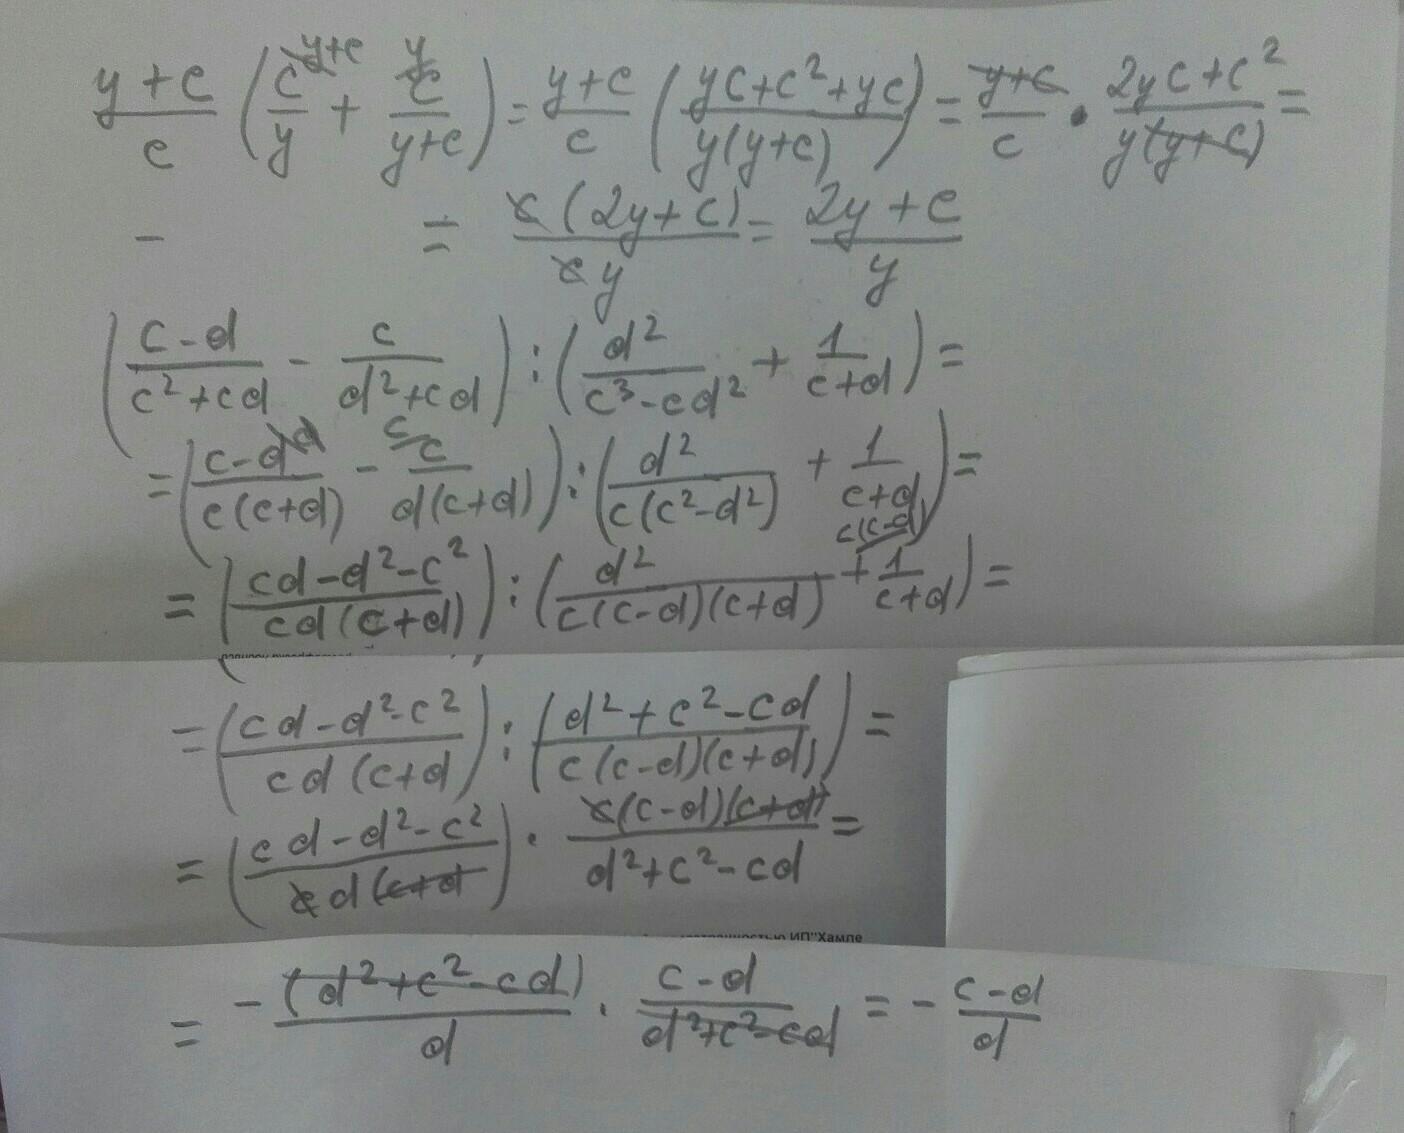 (y+c)/c (c/y + c/(y+c)) = (y+c)/c ((yc+c²+yc)/(y(y+c))) = (y+c)/c · (2yc+c²)/(y(y+c)) =
= c(2y+c)/(cy) = (2y+c)/y
((c-d)/(c²+cd) - c/(d²+cd)) : (d²/(c³-cd²) + 1/(c+d)) =
= ((c-d)/(c(c+d)) - c/(d(c+d))) : (d²/(c(c²-d²)) + 1/(c+d)) =
= ((cd-d²-c²)/(cd(c+d))) : (d²/(c(c-d)(c+d)) + 1/(c+d)) =
= ((cd-d²-c²)/(cd(c+d))) : ((d²+c²-cd)/(c(c-d)(c+d))) =
= ((cd-d²-c²)/(cd(c+d))) · (c(c-d)(c+d))/(d²+c²-cd) =
ИП"Хампе
= -(d²+c²-cd)/d · (c-d)/(d²+c²-cd) = - (c-d)/d